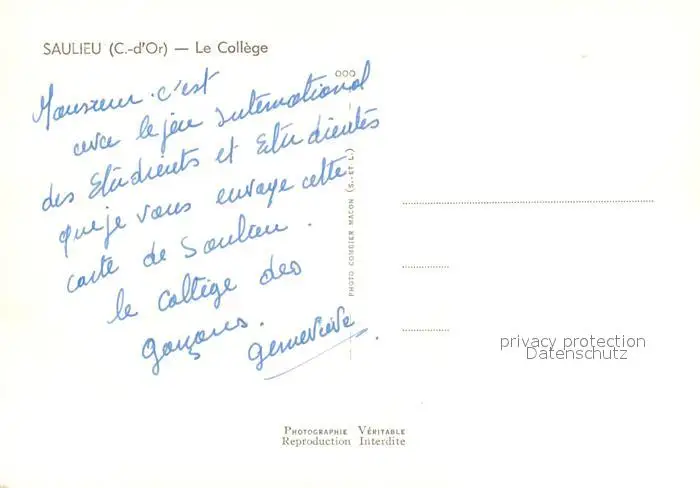 SAULIEU (C.-d'Or) — Le Collège
Monsieur. c'est
avec le jeu International
des Etudients et Etudientes
que je vous envoye cette
carte de Saulieu.
le collège des
garçons.
Geneviève
PHOTO COMBIER MACON (S.-ET-L.)
privacy protection
Datenschutz
PHOTOGRAPHIE VÉRITABLE
Reproduction Interdite